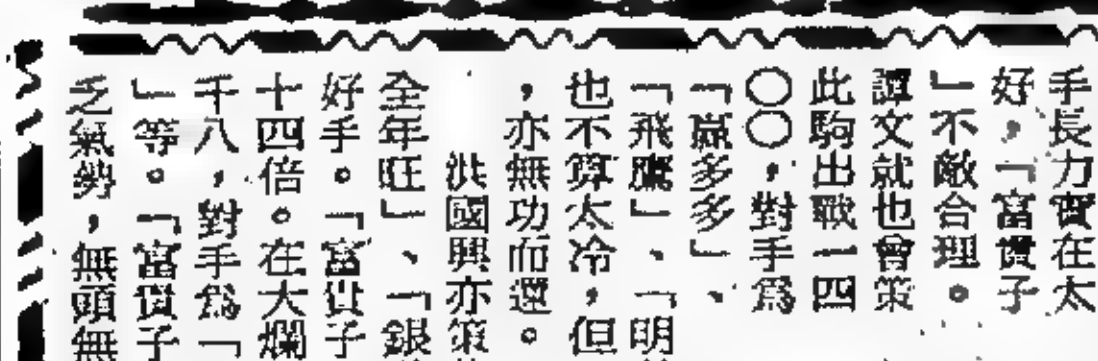 手長力實在太
好，「富貴子
」不敵合理。
譚文就也會策
此駒出戰一四
〇〇，對手爲
「贏多多」、
「飛鷹」、「明
也不算太冷，但
，亦無功而還。
洪國興亦策
全年旺」、「銀
好手。「富貴子
十四倍。在大爛
千八，對手爲「
」等。「富貴子
乏氣勢，無頭無